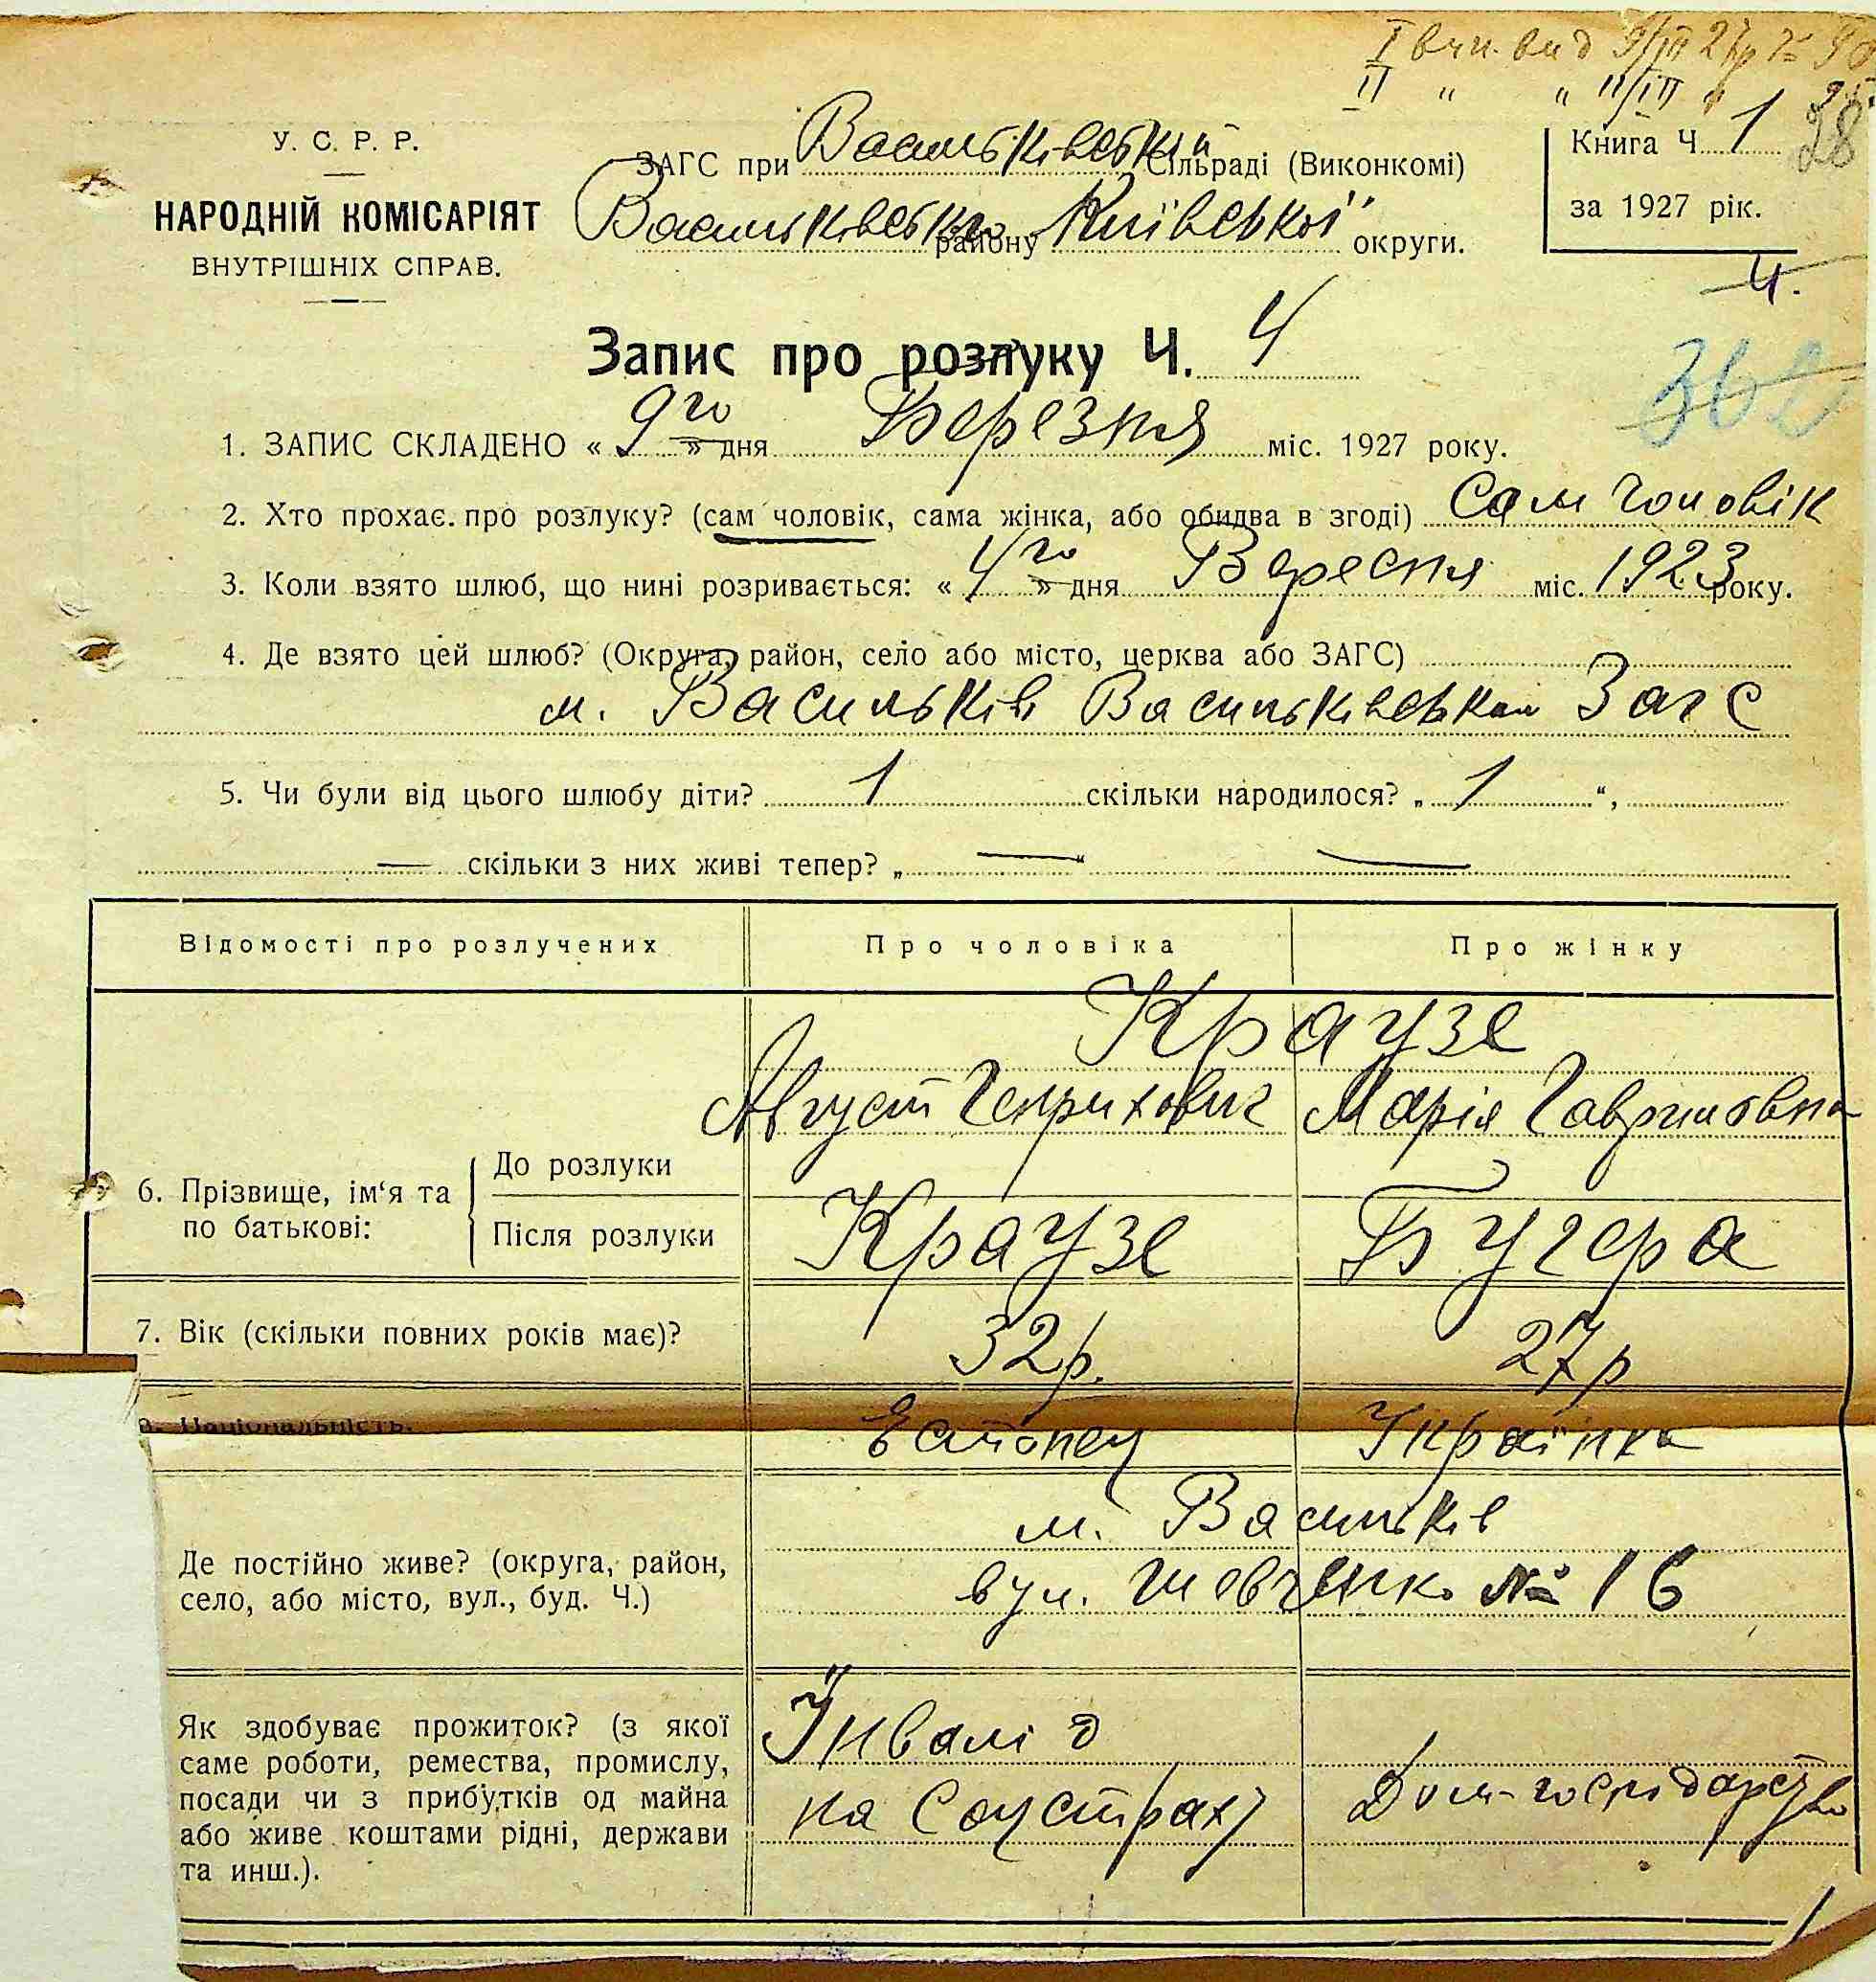 І вип. вид 9/ІІІ 27р №
ІІ " " 11/ІІІ "
У. С. Р. Р.
НАРОДНІЙ КОМІСАРІЯТ
ВНУТРІШНІХ СПРАВ.
ЗАГС при Васильківській Сільраді (Виконкомі)
Васильківського району Київської округи.
Книга Ч. 1 28
за 1927 рік.
4.
Запис про розлуку Ч. 4
1. ЗАПИС СКЛАДЕНО « 9го » дня Березня міс. 1927 року.
2. Хто прохає про розлуку? (сам чоловік, сама жінка, або обидва в згоді) Сам чоловік
3. Коли взято шлюб, що нині розривається: « 4го » дня Вересня міс. 1923 року.
4. Де взято цей шлюб? (Округа, район, село або місто, церква або ЗАГС)
м. Васильків Васильківський Загс
5. Чи були від цього шлюбу діти? 1 скільки народилося? „ 1 “,
— скільки з них живі тепер? „ — “ —
Відомості про розлучених
Про чоловіка
Про жінку
6. Прізвище, ім‘я та по батькові:
До розлуки
Краузе
Август Генрихович
Марія Гавриловна
Після розлуки
Краузе
Бугера
7. Вік (скільки повних років має)?
32р.
27р
8. Національність.
Естонец
Українка
Де постійно живе? (округа, район,
село, або місто, вул., буд. Ч.)
м. Васильків
вул. Шевченко № 16
Як здобуває прожиток? (з якої
саме роботи, ремества, промислу,
посади чи з прибутків од майна
або живе коштами рідні, держави
та инш.).
Інвалід
на Соцстраху
Дом-господарство